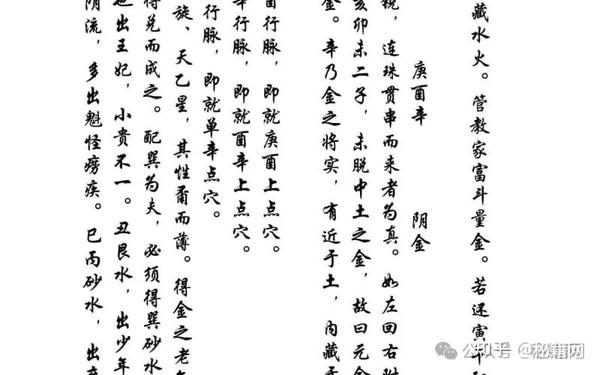 藏水火。管教家富斗量金。若还寅午
庚酉辛 阴金
，连珠贯串而来者为真。如左回右
亥卯未二子，未脱中土之金，故曰元金
金。辛乃金之将实，有近于土，内藏
酉行脉，即就庚酉上点穴。
辛行脉，即就酉辛上点穴。
行脉，即就单辛点穴。
旋、天乙星，其性甭而薄。得金之老
得兑而成之。配巽为夫，必须得巽砂水
也出王妃，小贵不一。丑艮水，出少年
阴流，多出魁怪痨疾。巳丙砂水，出
@秘籍网